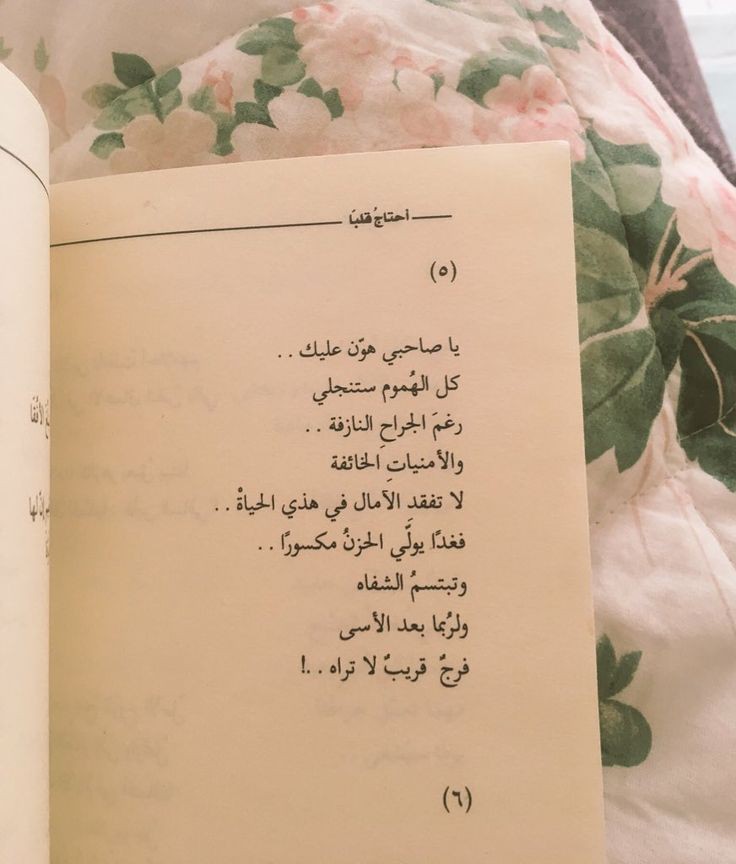 أحتاجُ قلبًا
(٥)
يا صاحبي هوّن عليك . .
كل الهُموم ستنجلي
رغمَ الجراحِ النازفة . .
والأمنياتِ الخائفة
لا تفقدِ الآمال في هذي الحياةْ . .
فغدًا يولّي الحزنُ مكسورًا . .
وتبتسمُ الشفاه
ولرُبما بعد الأسى
فرجٌ قريبٌ لا تراه . .!
(٦)